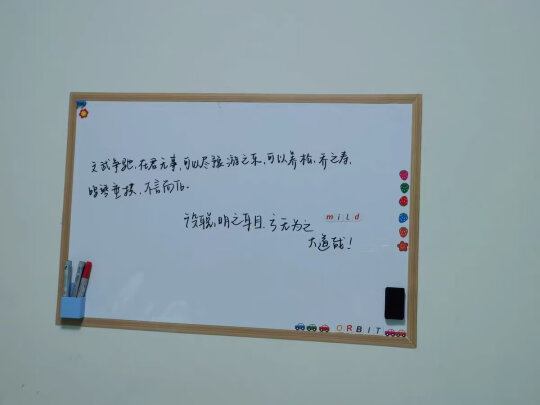 文武争驰,在君无事,可以尽豫游之乐,可以养松、乔之寿,
鸣琴垂拱,不言而化.
役聪明之耳目.亏无为之
mild
大道哉!
ORBIT